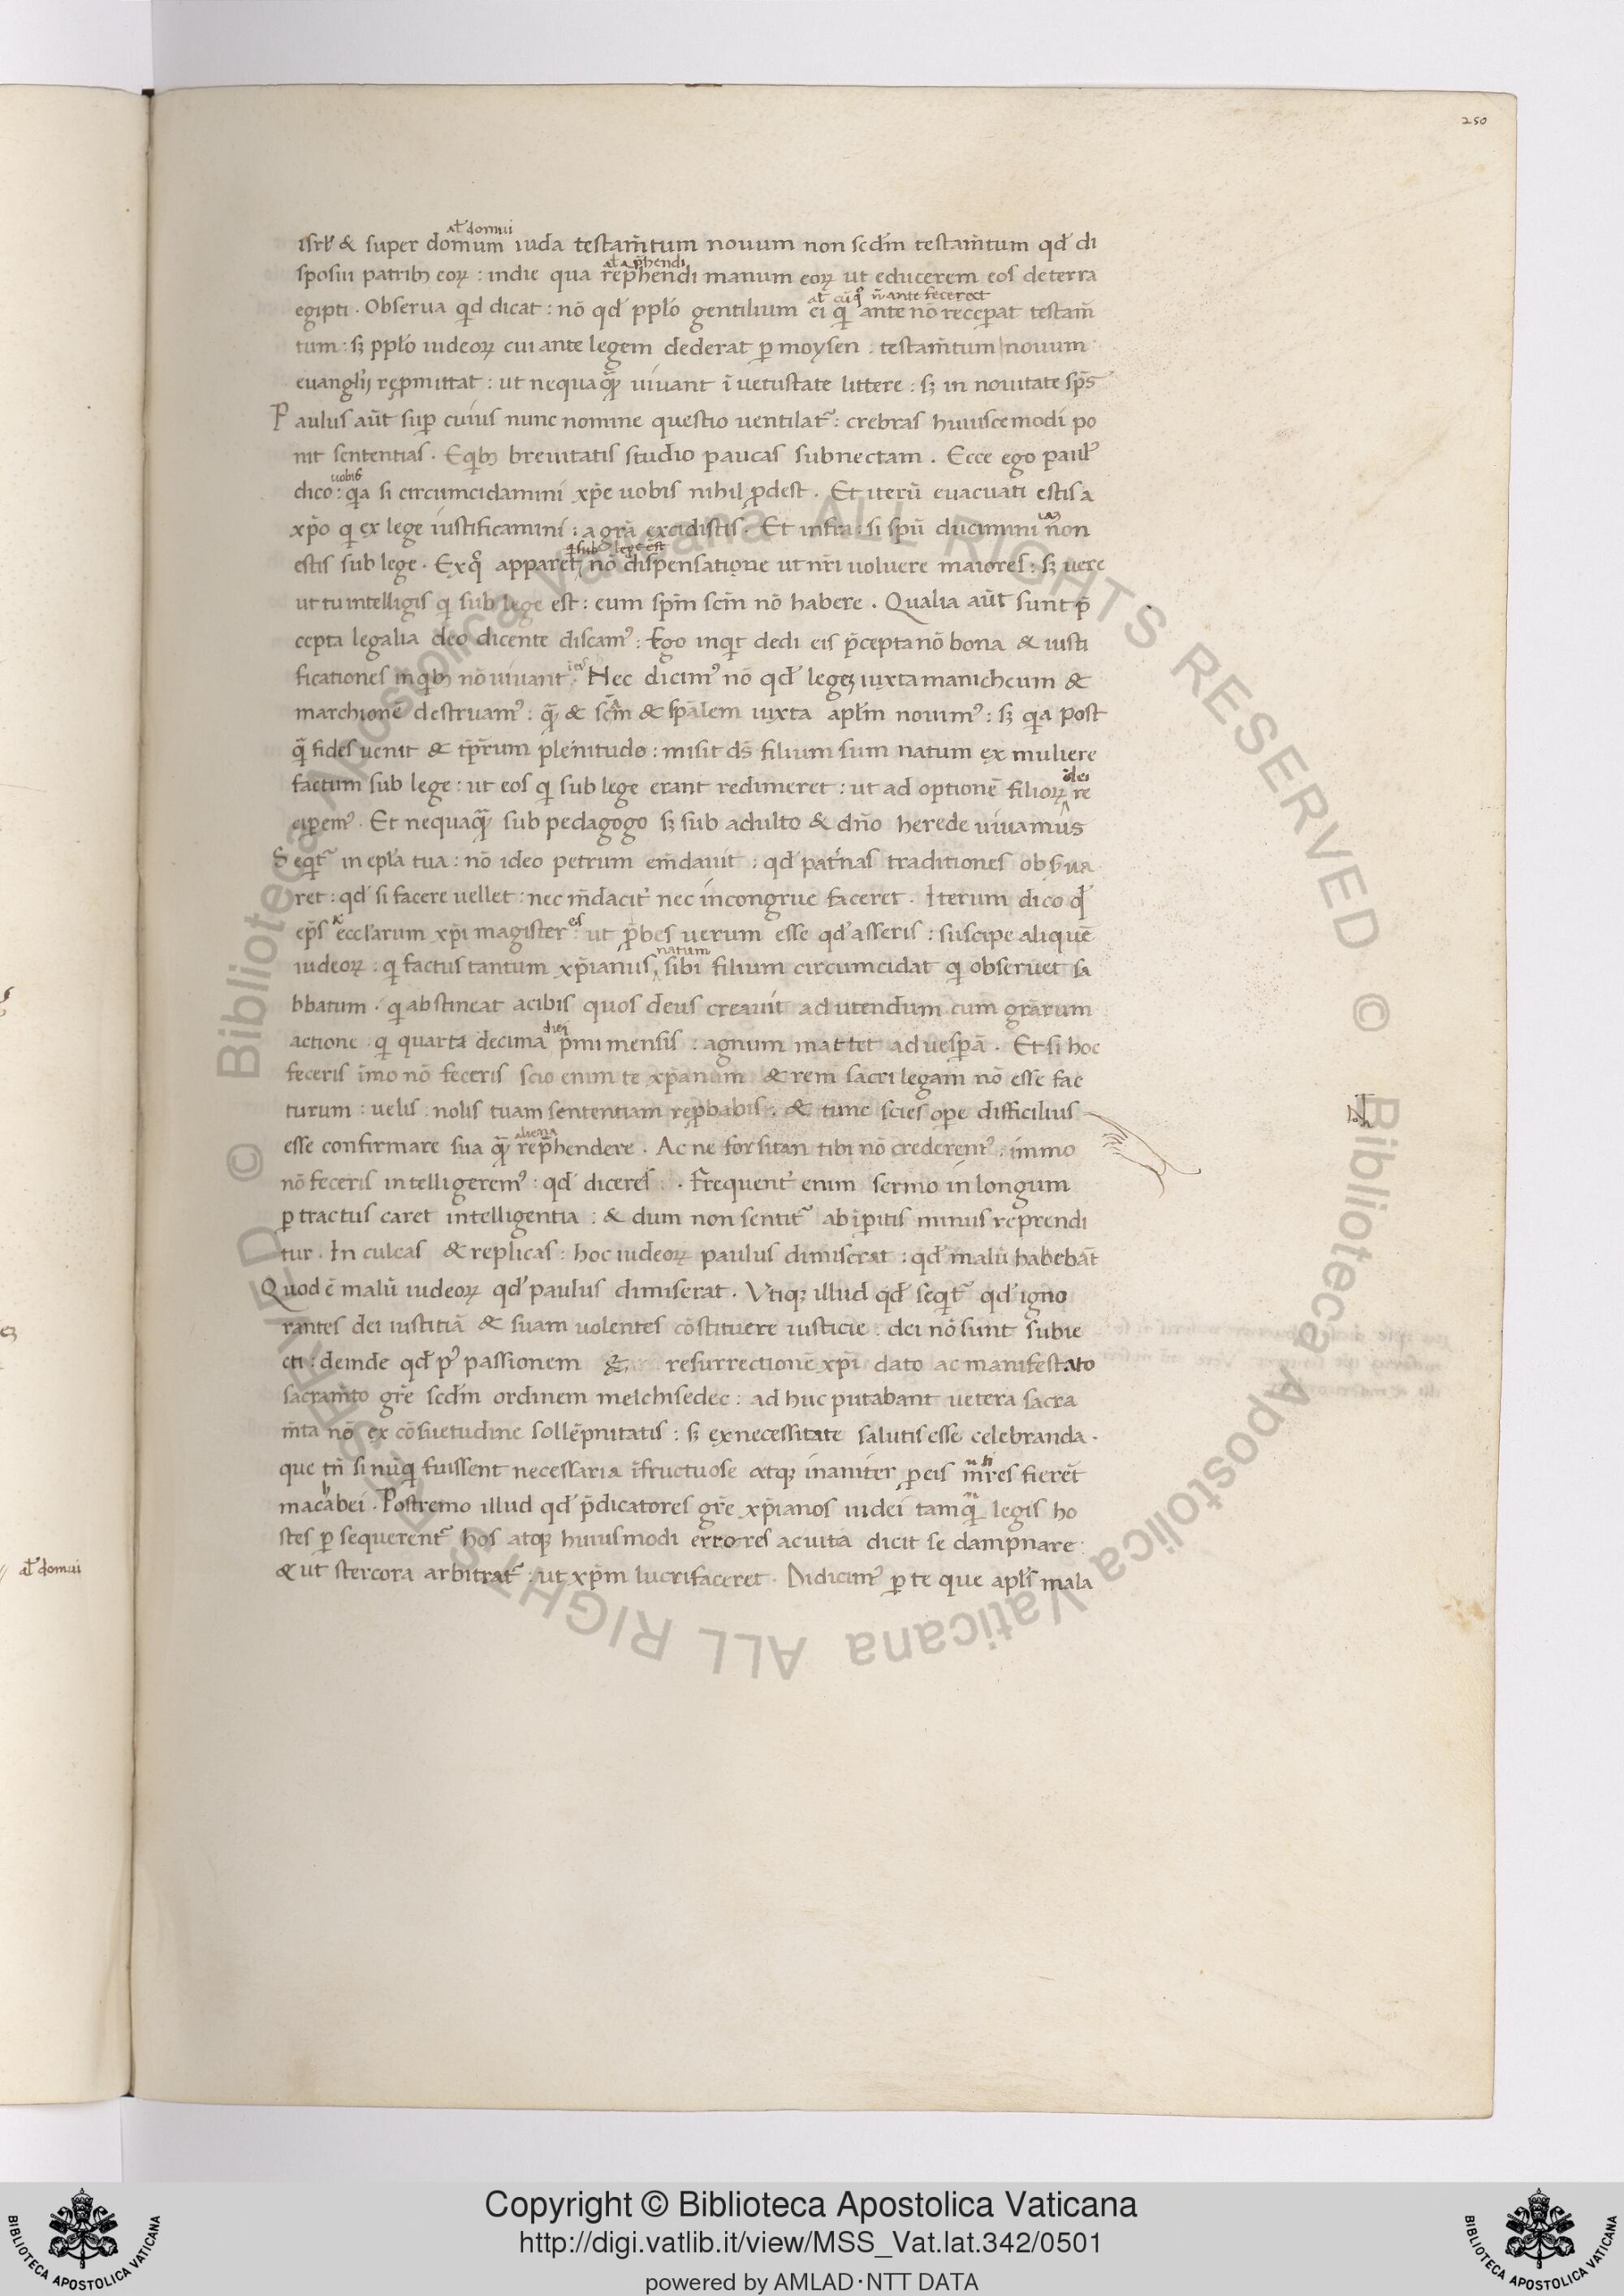 250
al' domui
isrl' & super domum iuda testam̄tum nouum non scdm̄ testam̄tum qd' di
al' app̄hendi
sposui patrib; eoꝝ : indie qua rep̄hendi manum eoꝝ ut educerem eos deterra
al' cū qͦ n̄ ante fecerat
egipti . Obserua qd dicat : nō qd' ppl'o gentilium ei qi ante nō recep̄at testam̄
tum : sꝫ ppl'o iudeoꝝ cui ante legem dederat p moysen . testam̄tum nouum
euanglij rep̄mittat : ut nequaqꝫ uiuant ī uetustate littere : sꝫ in nouitate sp̄s
Paulus aūt sup̄ cuius nunc nomine questio uentilat᷑ : crebras huiuscemodi po
nit sententias . Eqib; breuitatis studio paucas subnectam . Ecce ego paul᷑
uobis
dico : qa si circumcidamini xp̄e uobis nihil ꝓdest . Et iterū euacuati estis a
xp̄o q ex lege iustificamini : a grā excidistis . Et infra : si spū ducimini non
q sub lege est
estis sub lege . Exqͦ apparet nō dispensatione ut nr̄i uoluere maiores : sꝫ uere
ut tu intelligis q sub lege est : eum spm̄ scm̄ nō habere . Qualia aūt sunt p̄
cepta legalia deo dicente discam᷑ : Ego inqt dedi eis p̄cepta nō bona & iusti
ficationes inqb; nō uiuant . Hec dicim᷑ nō qd' legeꝫ iuxta manicheum &
marchionē destruam᷑ : qꝫ & scm̄ & spālem iuxta aplm̄ nouim᷑ : sꝫ qa post
q̄ fides uenit & tp̄rum plenitudo : misit ds̄ filium sum natum ex muliere
factum sub lege : ut eos q sub lege erant redimeret : ut ad optionē filioꝝ re
dei
cip̄em᷑ . Et nequaqꝫ sub pedagogo sꝫ sub adulto & dn̄o herede uiuamus
Seqt᷑ in epl'a tua : nō ideo petrum em̄dauit : qd' pat'nas traditiones obs'ua
ret : qd' si facere uellet : nec m̄dacit' nec incongrue faceret . Iterum dico qd'
ep̄s eccl'arum xp̄i magister es ut p̄bes uerum esse qd' asseris : suscipe aliquē
natum
iudeoꝝ : q factus tantum xp̄ianus sibi filium circumcidat q obseruet sa
bbatum . q abstineat acibis quos deus creauit ad utendum cum grārum
diei
actione : q quarta decima p̄mi mensis : agnum mattet ad uesp̄ā . Et si hoc
feceris īmo nō feceris scio enim te xp̄anum & rem sacri legam nō esse fac
turum : uelis nolis tuam sententiam rep̄babis : & tunc scies ope difficilius
aliena
esse confirmare sua qꝫ rep̄hendere . Ac ne forsitan tibi nō crederent᷑ : immo
nō feceris intelligerem᷑ : qd' diceres . Frequent' enim sermo in longum
p tractus caret intelligentia : & dum non sentit᷑ ab īp̄itis minus reprendi
tur . In culcas & replicas : hoc iudeoꝝ paulus dimiserat : qd' malū habebāt
Quod ē malū iudeoꝝ qd' paulus dimiserat . Vtiqꝫ illud qd' seqt᷑ qd' igno
rantes dei iustitiā & suam uolentes cōstituere iusticie dei nō sunt subie
cti : deinde qd' p᷑ passionem & resurrectionē xp̄i dato ac manifestato
sacram̄to gr̄e scdm̄ ordinem melchisedec : ad huc putabant uetera sacra
m̄ta nō ex cōsuetudine sollēpnitatis : sꝫ ex necessitate salutis esse celebranda .
que tn̄ si nūq fuissent necessaria īfructuose atqꝫ inaniter p eis mr̄es fierēt
macabei . Postremo illud qd' p̄dicatores gr̄e xp̄ianos iudei tamq̄ legis ho
stes p sequerent᷑ hos atqꝫ huiusmodi errores ac uita dicit se dampnare
& ut stercora arbitrat᷑ : ut xp̄m lucrifaceret . Didicim᷑ p te que apl's mala
al' domui
Copyright © Biblioteca Apostolica Vaticana
http://digi.vatlib.it/view/MSS_Vat.lat.342/0501
powered by AMLAD·NTT DATA
BIBLIOTECA APOSTOLICA VATICANA
BIBLIOTECA APOSTOLICA VATICANA
© Biblioteca Apostolica Vaticana ALL RIGHTS RESERVED © Biblioteca Apostolica Vaticana ALL RIGHTS RESERVED